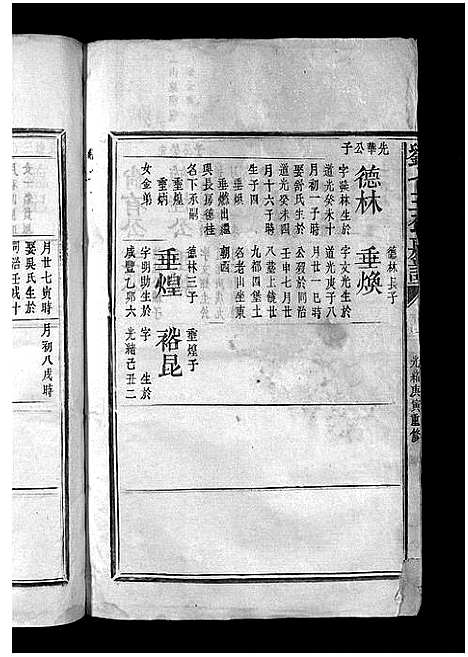 光緒庚寅重修
先華公子
德林
字葵林生於
道光癸未十
月初一子時
娶舒氏生於
道光癸未四
月十六子時
生子四
垂煥
垂燉出繼
與長房德桂
名下承嗣
垂煌
垂炳
女金弟
德林長子
垂煥
字文光生於
道光庚子八
月廿一巳時
公歿於同治
壬申七月廿
八葬上饒廿
九都四堡土
名老山坐東
朝西
德林三子
垂煌
字明助生於
咸豐乙卯六
垂煌子
裕昆
字　生於
光緒己丑二
月廿七寅時
娶吳氏生於
同治壬戌十
月初八戌時